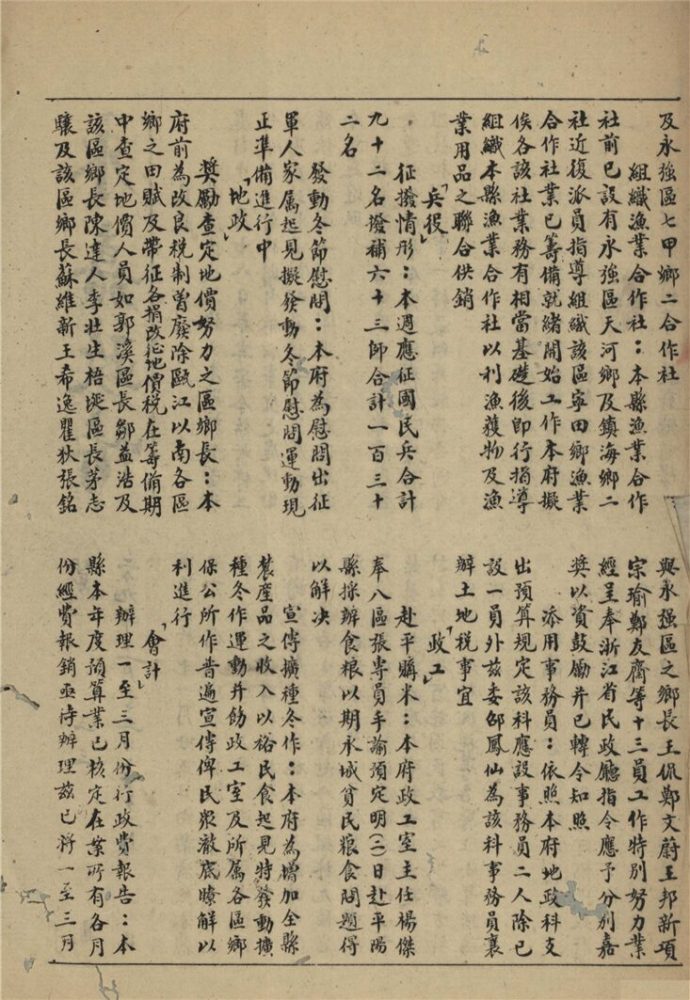 及永強區七甲鄉二合作社
組織漁業合作社：本縣漁業合作
社前已設有永強區天河鄉及鎮海鄉二
社近復派員指導組織該區寧田鄉漁業
合作社業已籌備就緒開始工作本府擬
俟各該社業務有相當基礎後即行指導
組織本縣漁業合作社以利漁獲物及漁
業用品之聯合供銷
「兵役」
征撥情形：本週應征國民兵合計
九十二名撥補六十三師合計一百三十
二名
發動冬節慰問：本府為慰問出征
軍人家屬起見擬發動冬節慰問運動現
正準備進行中
「地政」
獎勵查定地價努力之區鄉長：本
府前為改良稅制曾廢除甌江以南各區
鄉之田賦及帶征各捐改征地價稅在籌備期
中查定地價人員如郭溪區長鄒益浩及
該區鄉長陳達人李壯生梧埏區長茅志
驤及該區鄉長蘇維新王希逸瞿狄張銘
與永強區之鄉長王侃鄭文蔚王邦新項
宗瑜鄭友齋等十三員工作特別努力業
經呈奉浙江省民政廳指令應予分別嘉
獎以資鼓勵并已轉令知照
添用事務員：依照本府地政科支
出預算規定該科應設事務員二人除已
設一員外茲委邵鳳仙為該科事務員襄
辦土地稅事宜
「政工」
赴平購米：本府政工室主任楊傑
奉八區張專員手諭預定明(二)日赴平陽
縣採辦食粮以期永城貧民粮食問題得
以解決
宣傳擴種冬作：本府為增加全縣
農產品之收入以裕民食起見特發動擴
種冬作運動并飭政工室及所屬各區鄉
保公所作普遍宣傳俾民眾澈底瞭解以
利進行
「會計」
辦理一至三月份行政費報告：本
縣本年度預算業已核定在案所有各月
份經費報銷亟待辦理茲已將一至三月